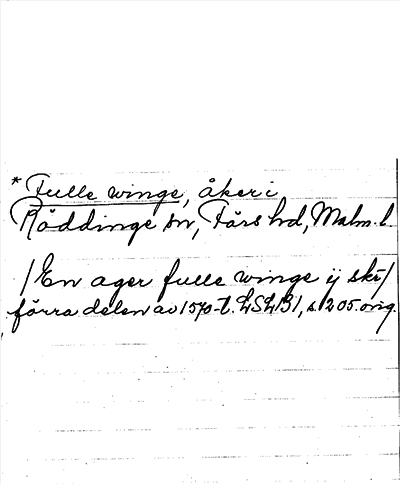 * Fulle winge, åker i
Röddinge sn, Färs hd, Malm. l.
/En ager fulle winge ij skr/
förra delen av 1570-t. LSLB1, s. 205 orig.